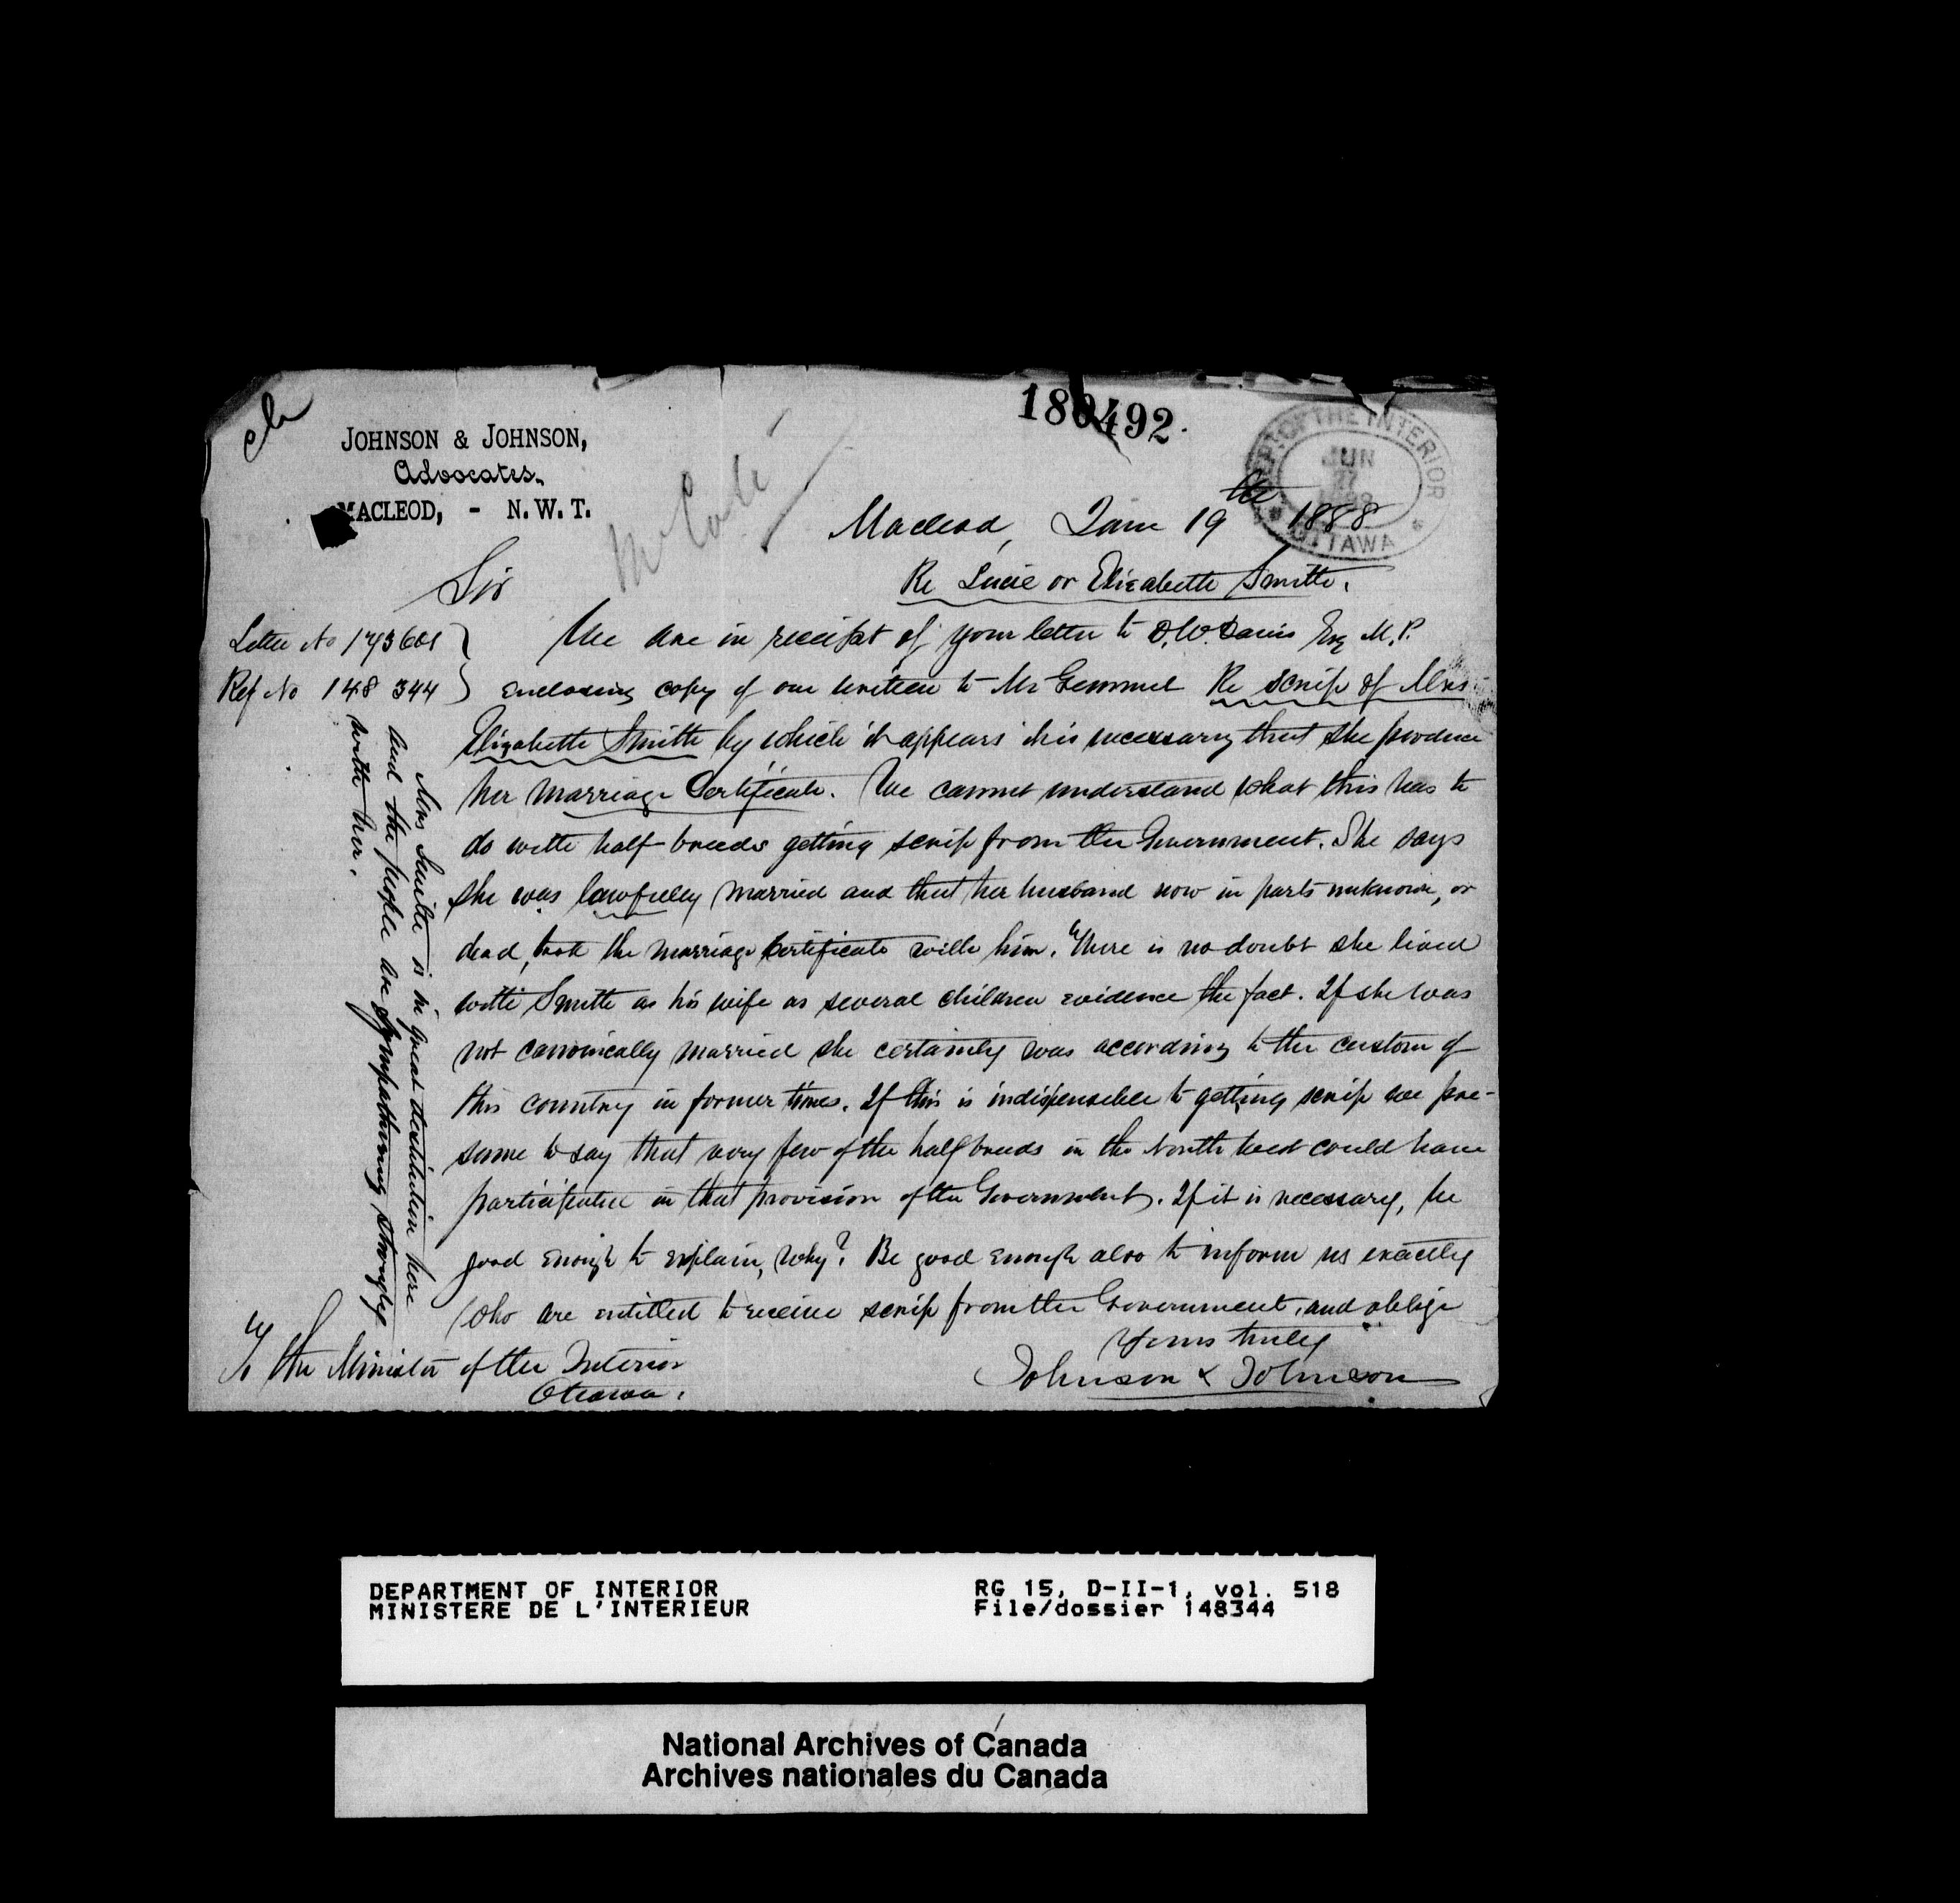 ch
180492.
JOHNSON & JOHNSON,
Advocates.
MACLEOD, - N.W.T.
DEPT. OF THE INTERIOR
JUN 27 1888
OTTAWA
Macleod, June 19th 1888
Re Lucie or Elizabeth Smith.
Sir
Letter No 173601
Ref No 148 344
We are in receipt of your letter to D.W. Davis Esq M.P.
enclosing copy of one written to Mr Gemmel Re scrip of Mrs
Elizabeth Smith by which it appears it is necessary that she produce
her marriage Certificate. We cannot understand what this has to
do with half-breeds getting scrip from the Government. She says
she was lawfully married and that her husband now in parts unknown, or
dead, took the marriage certificate with him. There is no doubt she lived
with Smith as his wife as several children evidence the fact. If she was
not canonically married she certainly was according to the custom of
this country in former times. If this is indispensible to getting scrip we pre-
sume to say that very few of the half breeds in the North West could have
participated in that provision of the Government. If it is necessary, be
good enough to explain, why? Be good enough also to inform us exactly
who are entitled to receive scrip from the Government, and oblige
Yours truly
Johnson & Johnson
To the Minister of the Interior
Ottawa.
Mrs Smith is in great destitution here
and the people are sympathising strongly
with her.
DEPARTMENT OF INTERIOR
MINISTERE DE L'INTERIEUR
RG 15, D-II-1, vol. 518
File/dossier 148344
National Archives of Canada
Archives nationales du Canada